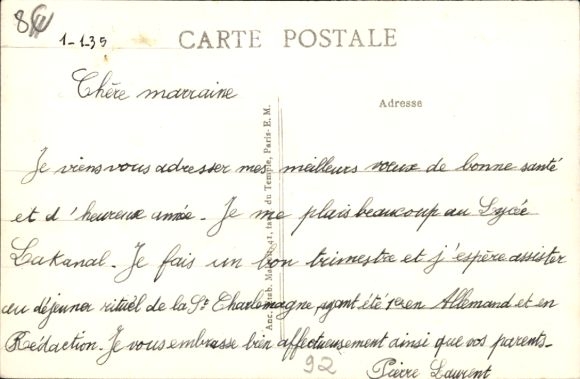 84
1-1-35
CARTE POSTALE
Chère marraine
Adresse
Je viens vous adresser mes meilleurs vœux de bonne santé
et d'heureuse année. Je me plais beaucoup au Lycée
Lakanal. Je fais un bon trimestre et j'espère assister
au déjeuner rituel de la St Charlemagne, ayant été 1er en Allemand et en
Rédaction. Je vous embrasse bien affectueusement ainsi que vos parents.
Pierre Laurent
92
Anc. Etab. 41, du Temple, Paris-E. M.